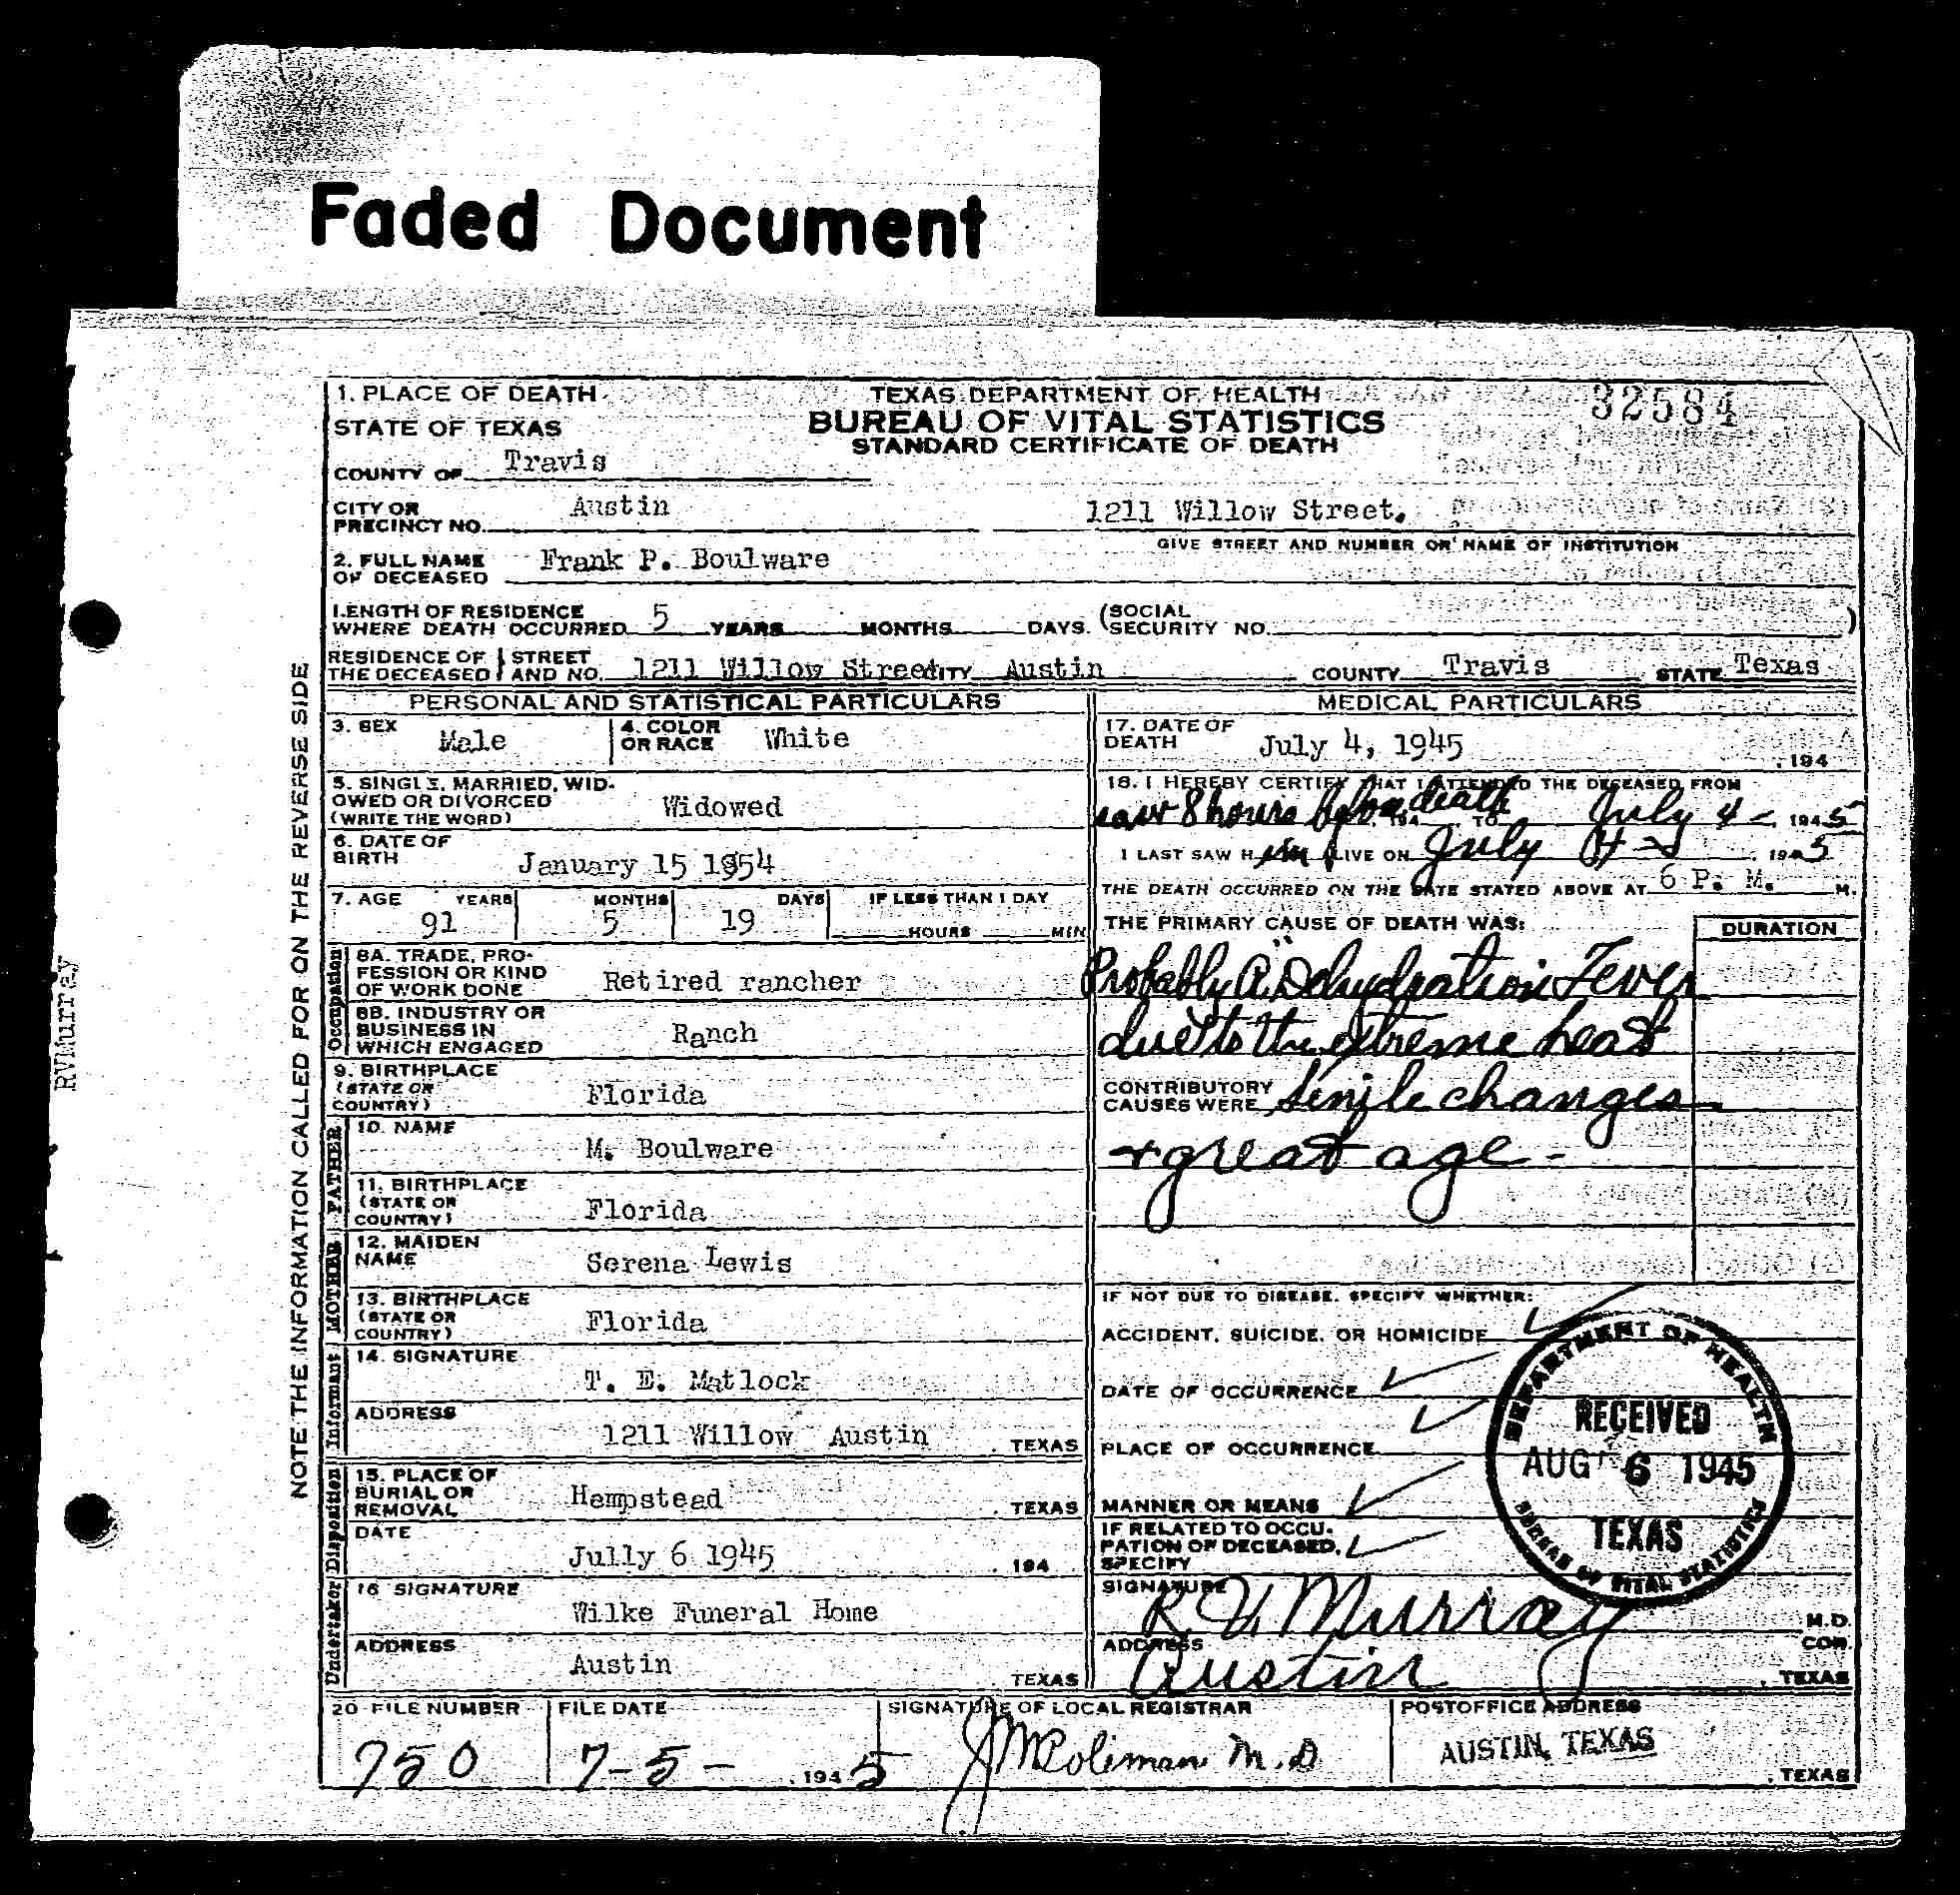 Faded Document
1. PLACE OF DEATH
TEXAS DEPARTMENT OF HEALTH
32584
STATE OF TEXAS
BUREAU OF VITAL STATISTICS
STANDARD CERTIFICATE OF DEATH
COUNTY OF Travis
CITY OR PRECINCT NO. Austin 1211 Willow Street.
GIVE STREET AND NUMBER OR NAME OF INSTITUTION
2. FULL NAME OF DECEASED Frank P. Boulware
LENGTH OF RESIDENCE WHERE DEATH OCCURRED 5 YEARS MONTHS DAYS. (SOCIAL SECURITY NO. )
RESIDENCE OF THE DECEASED STREET AND NO. 1211 Willow Street CITY Austin COUNTY Travis STATE Texas
PERSONAL AND STATISTICAL PARTICULARS
3. SEX Male 4. COLOR OR RACE White
5. SINGLE, MARRIED, WIDOWED OR DIVORCED (WRITE THE WORD) Widowed
6. DATE OF BIRTH January 15 1854
7. AGE YEARS MONTHS DAYS IF LESS THAN 1 DAY
91 5 19 HOURS MIN
Occupation
8A. TRADE, PROFESSION OR KIND OF WORK DONE Retired rancher
8B. INDUSTRY OR BUSINESS IN WHICH ENGAGED Ranch
9. BIRTHPLACE (STATE OR COUNTRY) Florida
FATHER
10. NAME M. Boulware
11. BIRTHPLACE (STATE OR COUNTRY) Florida
MOTHER
12. MAIDEN NAME Serena Lewis
13. BIRTHPLACE (STATE OR COUNTRY) Florida
Informant
14. SIGNATURE T. E. Matlock
ADDRESS 1211 Willow Austin , TEXAS
Disposition
15. PLACE OF BURIAL OR REMOVAL Hempstead , TEXAS
DATE Jully 6 1945 , 194
Undertaker
16 SIGNATURE Wilke Funeral Home
ADDRESS Austin TEXAS
MEDICAL PARTICULARS
17. DATE OF DEATH July 4, 1945 , 194
18. I HEREBY CERTIFY THAT I ATTENDED THE DECEASED FROM
saw 8 hours before death , 194 TO July 4 - , 1945
I LAST SAW Him ALIVE ON July 4 - , 1945
THE DEATH OCCURRED ON THE DATE STATED ABOVE AT 6 P. M. M.
THE PRIMARY CAUSE OF DEATH WAS: DURATION
Probably A "Dehydration Fever
due to the extreme heat
CONTRIBUTORY CAUSES WERE Senile changes
+ great age -
IF NOT DUE TO DISEASE, SPECIFY WHETHER:
ACCIDENT, SUICIDE, OR HOMICIDE
DATE OF OCCURRENCE
PLACE OF OCCURRENCE
MANNER OR MEANS
IF RELATED TO OCCUPATION OF DECEASED, SPECIFY
SIGNATURE R V Murray M.D.
COR.
ADDRESS Austin , TEXAS
DEPARTMENT OF HEALTH
RECEIVED
AUG 6 1945
TEXAS
BUREAU OF VITAL STATISTICS
20 FILE NUMBER FILE DATE SIGNATURE OF LOCAL REGISTRAR POSTOFFICE ADDRESS
750 7-5- , 1945 M.D. AUSTIN, TEXAS , TEXAS
NOTE THE INFORMATION CALLED FOR ON THE REVERSE SIDE
RVMurray